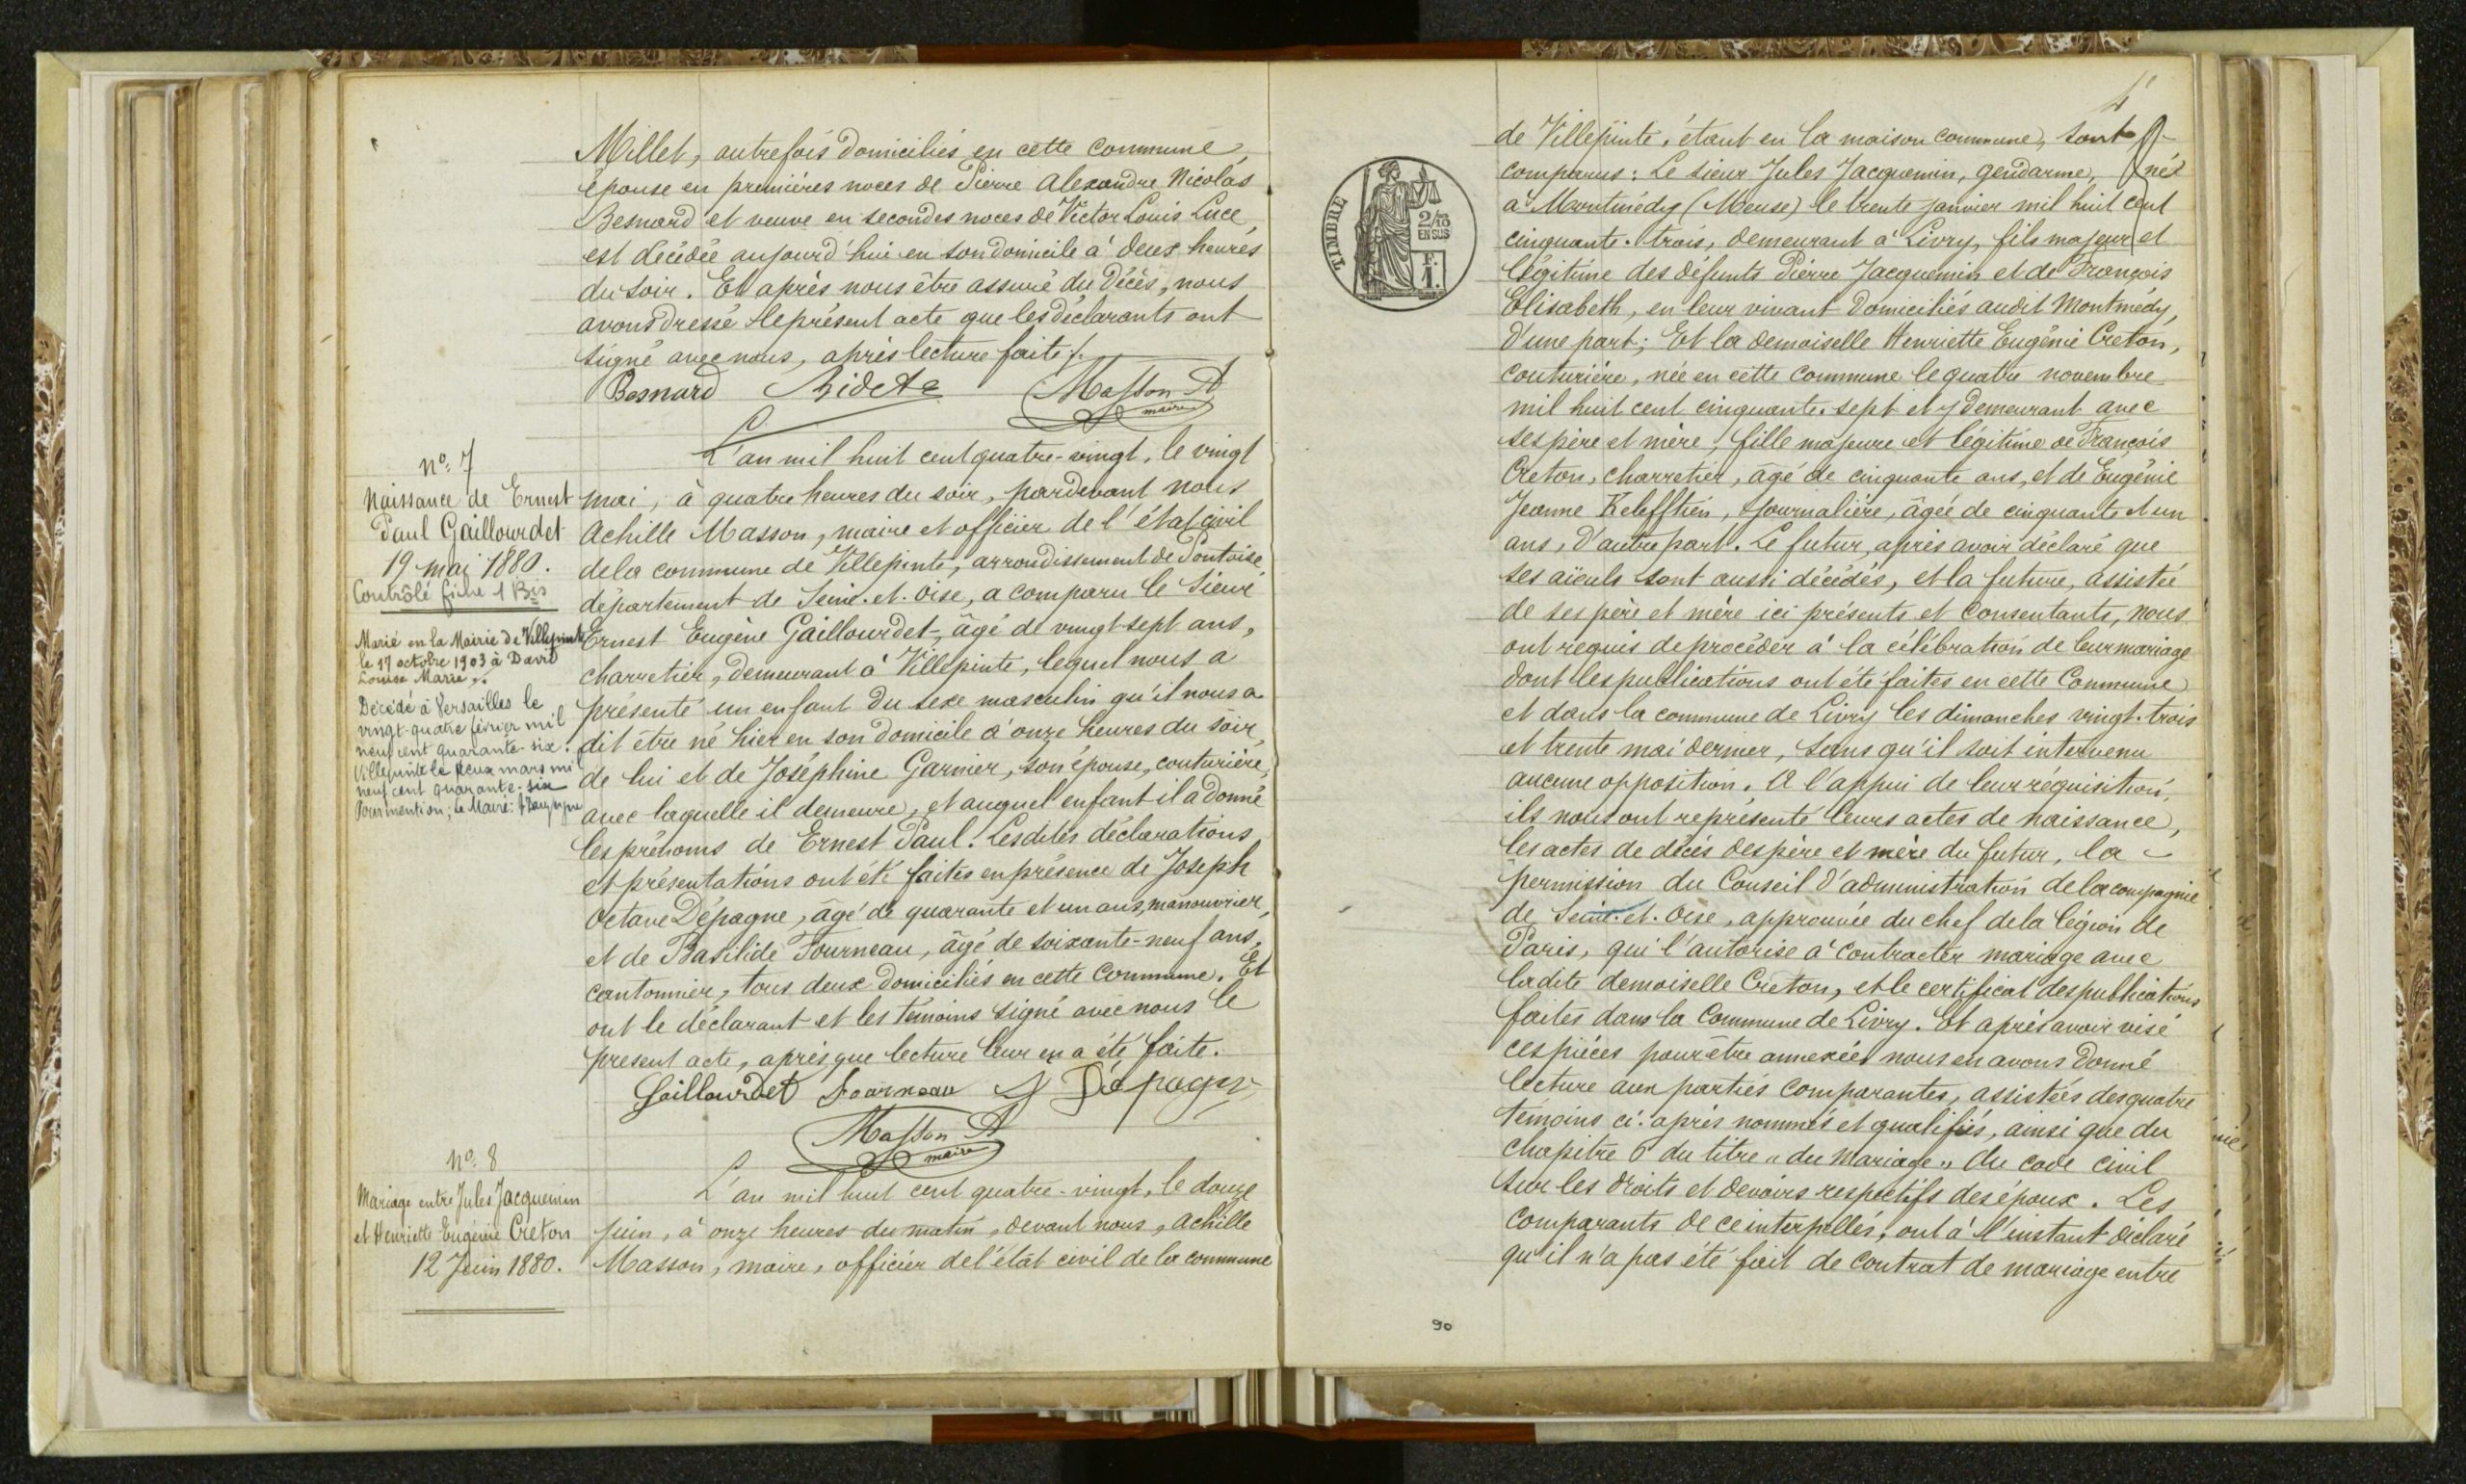 Millet, autrefois domiciliés en cette commune,
épouse en premières noces de Pierre Alexandre Nicolas
Besnard et veuve en secondes noces de Victor Louis Luce,
est décédée aujourd'hui en son domicile à deux heures
du soir. Et après nous être assuré du décès, nous
avons dressé le présent acte que les déclarants ont
signé avec nous, après lecture faite.
Besnard Masson A
maire
L'an mil huit cent quatre-vingt, le vingt
nº 7
Naissance de Ernest
Paul Gaillourdet
19 mai 1880.
Contrôlé fiche 1 Bis
Marié en la Mairie de Villepinte
le 17 octobre 1903 à David
Louise Marie.
Décédé à Versailles le
vingt-quatre février mil
neuf cent quarante-six.
Villepinte le deux mars mil
neuf cent quarante-six
Pour mention; Le Maire:
mai, à quatre heures du soir, pardevant nous
Achille Masson, maire et officier de l'état civil
de la commune de Villepinte, arrondissement de Pontoise,
département de Seine-et-Oise, a comparu le Sieur
Ernest Eugène Gaillourdet, âgé de vingt-sept ans,
charretier, demeurant à Villepinte, lequel nous a
présenté un enfant du sexe masculin qu'il nous a
dit être né hier en son domicile à onze heures du soir,
de lui et de Joséphine Garnier, son épouse, couturière,
avec laquelle il demeure, et auquel enfant il a donné
les prénoms de Ernest Paul. Lesdites déclarations
et présentations ont été faites en présence de Joseph
Octave Dépagne, âgé de quarante et un ans, manouvrier,
et de Basilide Fourneau, âgé de soixante-neuf ans,
cantonnier, tous deux domiciliés en cette commune. Et
ont le déclarant et les témoins signé avec nous le
présent acte, après que lecture leur en a été faite.
Gaillourdet Fourneau Dépagne
Masson A
maire
nº 8
Mariage entre Jules Jacquemin
et Henriette Eugénie Creton
12 Juin 1880.
L'an mil huit cent quatre-vingt, le douze
juin, à onze heures du matin, devant nous, Achille
Masson, maire, officier de l'état civil de la commune
TIMBRE
2/10
EN SUS
F.
1.
4
de Villepinte, étant en la maison commune, sont
comparus: Le sieur Jules Jacquemin, gendarme, né
à Montmédy (Meuse) le trente janvier mil huit cent
cinquante-trois, demeurant à Livry, fils majeur et
légitime des défunts Pierre Jacquemin et de François
Elisabeth, en leur vivant domiciliés audit Montmédy,
d'une part; Et la demoiselle Henriette Eugénie Creton,
couturière, née en cette commune le quatre novembre
mil huit cent cinquante-sept et y demeurant avec
ses père et mère, fille majeure et légitime de François
Creton, charretier, âgé de cinquante ans, et de Eugénie
Jeanne, journalière, âgée de cinquante et un
ans, d'autre part. Le futur, après avoir déclaré que
ses aïeuls sont aussi décédés, et la future, assistée
de ses père et mère ici présents et consentants, nous
ont requis de procéder à la célébration de leur mariage
dont les publications ont été faites en cette Commune
et dans la commune de Livry les dimanches vingt-trois
et trente mai dernier, sans qu'il soit intervenu
aucune opposition. A l'appui de leur réquisition,
ils nous ont représenté leurs actes de naissance,
les actes de décès des père et mère du futur, la
permission du Conseil d'administration de la compagnie
de Seine-et-Oise, approuvée du chef de la légion de
Paris, qui l'autorise à contracter mariage avec
ladite demoiselle Creton, et le certificat des publications
faites dans la Commune de Livry. Et après avoir visé
ces pièces pour être annexées nous en avons donné
lecture aux parties comparantes, assistées des quatre
témoins ci-après nommés et qualifiés, ainsi que du
chapitre 6 du titre "du mariage" du code civil
sur les droits et devoirs respectifs des époux. Les
comparants de ce interpellés, ont à l'instant déclaré
qu'il n'a pas été fait de contrat de mariage entre
90